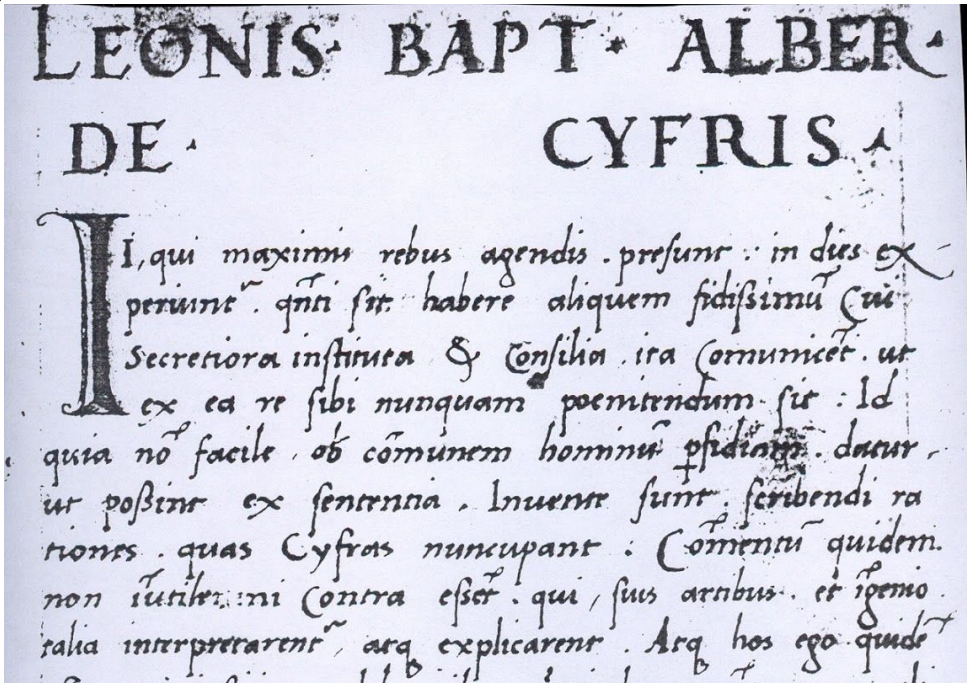 LEONIS· BAPT· ALBER·
DE· CYFRIS·
II, qui maximis rebus agendis . presunt : in dies ex
periunt᷒ . qñti sit habere aliquem fidissimū Cui
Secretiora instituta & Consilia . ita Comunicēt . ut
ex ea re sibi nunquam poenitendum sit : Id
quia nō facile . ob cōmunem hominū ꝑfidiam . datur ,
ut poßint ex sententia . Invente sunt . scribendi ra
tiones . quas Cyfras nuncupant : Cōmentū quidem
non iūtile : ni Contra essēt . qui , suis artibus . et īgenio
talia interpretarent᷒ , atq explicarent . Atq hos ego quidē